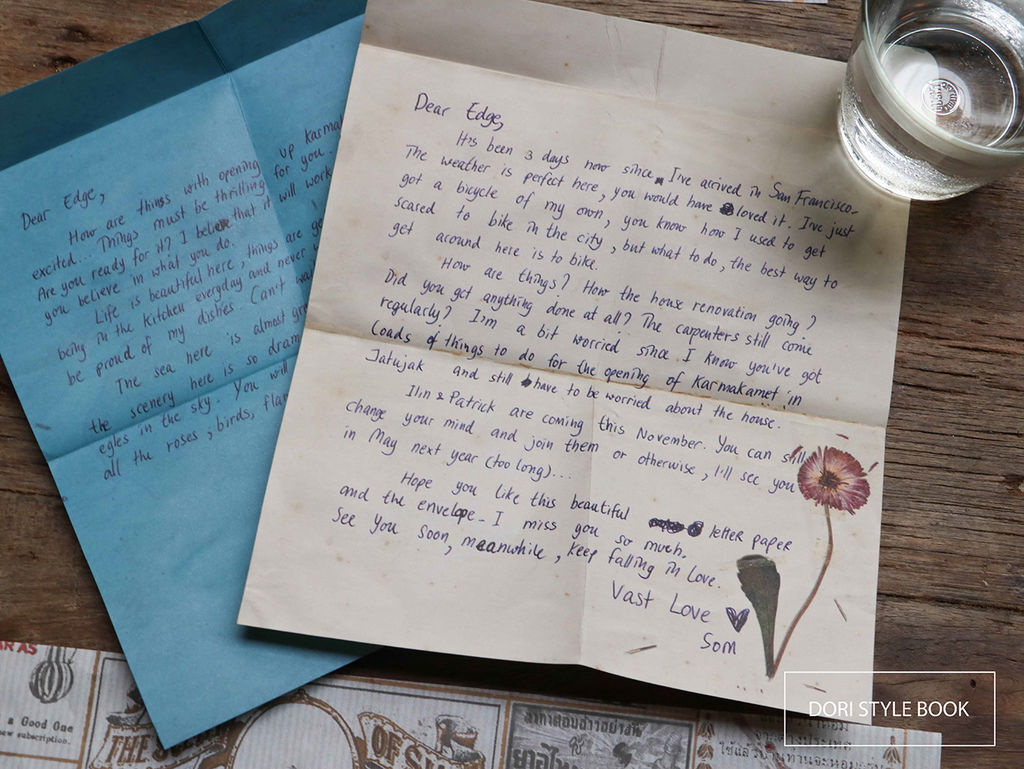 Dear Edge,
How are things with opening up Karma
excited... Things must be thrilling for you.
Are you ready for it? I believe that it will work
you believe in what you do.
Life is beautiful here, things are go
being in the kitchen everyday and never
be proud of my dishes (can't wai
The sea here is almost gr
the scenery here is so dram
egles in the sky. You will
all the roses, birds, flam
Dear Edge,
It's been 3 days now since I've arrived in San Francisco.
The weather is perfect here, you would have loved it. I've just
got a bicycle of my own, you know how I used to get
scared to bike in the city, but what to do, the best way to
get around here is to bike.
How are things? How the house renovation going?
Did you get anything done at all? The carpenters still come
regularly? I'm a bit worried since I know you've got
loads of things to do for the opening of Karmakamet in
Jatujak and still have to be worried about the house.
Ilin & Patrick are coming this November. You can still
change your mind and join them or otherwise, I'll see you
in May next year (too long)...
Hope you like this beautiful letter paper
and the envelope. I miss you so much.
See you soon, meanwhile, keep falling in love.
Vast Love
Som
AR AS
a Good One
new subscription.
THE
OF
DORI STYLE BOOK